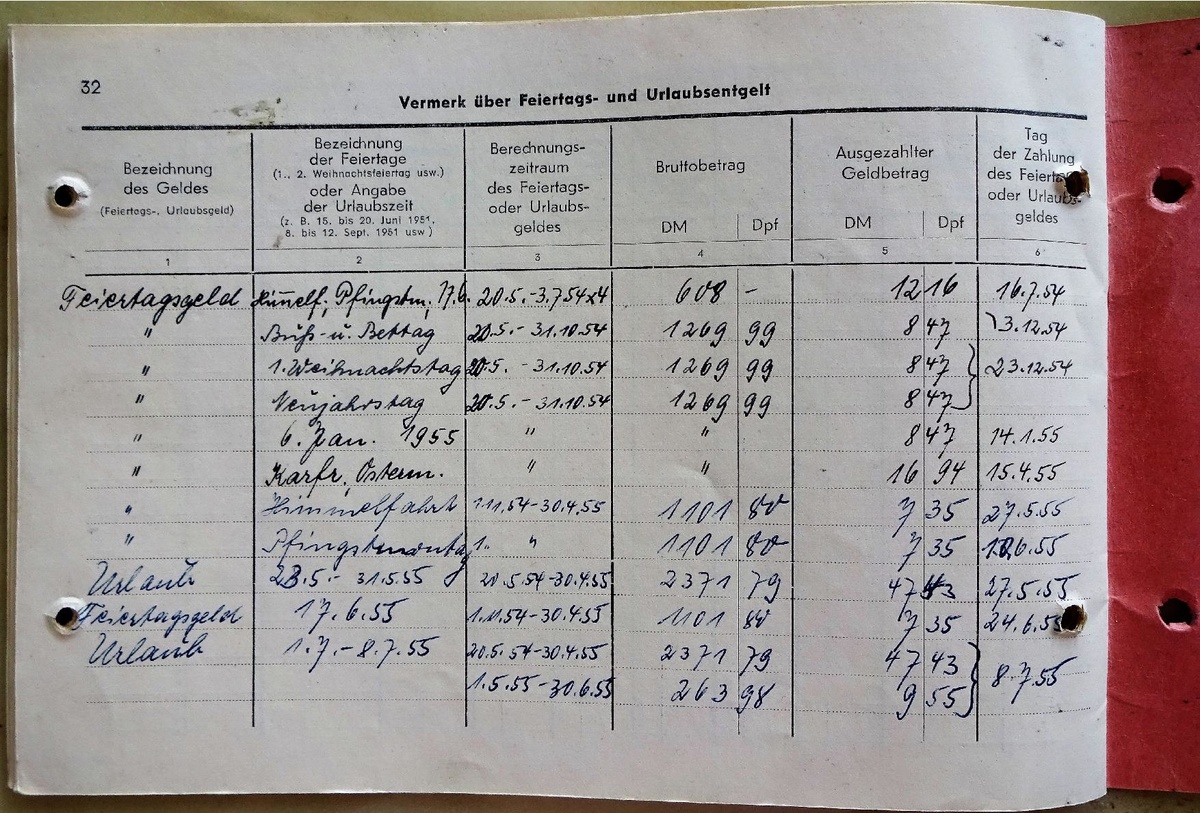 32
Vermerk über Feiertags- und Urlaubsentgelt
Bezeichnung
des Geldes
(Feiertags-, Urlaubsgeld)
Bezeichnung
der Feiertage
(1., 2. Weihnachtsfeiertag usw.)
oder Angabe
der Urlaubszeit
(z. B. 15. bis 20. Juni 1951,
8. bis 12. Sept. 1951 usw)
Berechnungs-
zeitraum
des Feiertags-
oder Urlaubs-
geldes
Bruttobetrag
DM Dpf
Ausgezahlter
Geldbetrag
DM Dpf
Tag
der Zahlung
des Feiertags-
oder Urlaubs-
geldes
1 2 3 4 5 6
Feiertagsgeld Himelf, Pfingstm, 17.6. 20.5.-3.7.54 x4 608 - 12 16 16.7.54
" Buß- u. Bettag 20.5.-31.10.54 1269 99 8 47 3.12.54
" 1. Weihnachtstag 20.5.-31.10.54 1269 99 8 47 23.12.54
" Neujahrstag 20.5.-31.10.54 1269 99 8 47
" 6. Jan. 1955 " " 8 47 14.1.55
" Karfr, Osterm. " " 16 94 15.4.55
" Himmelfahrt 1.11.54-30.4.55 1101 80 7 35 27.5.55
" Pfingstmontag 1. " 1101 80 7 35 10.6.55
Urlaub 23.5.-31.5.55 20.5.54-30.4.55 2371 79 47 43 27.5.55
Feiertagsgeld 17.6.55 1.11.54-30.4.55 1101 80 7 35 24.6.55
Urlaub 1.7.-8.7.55 20.5.54-30.4.55 2371 79 47 43 8.7.55
1.5.55-30.6.55 263 98 9 55